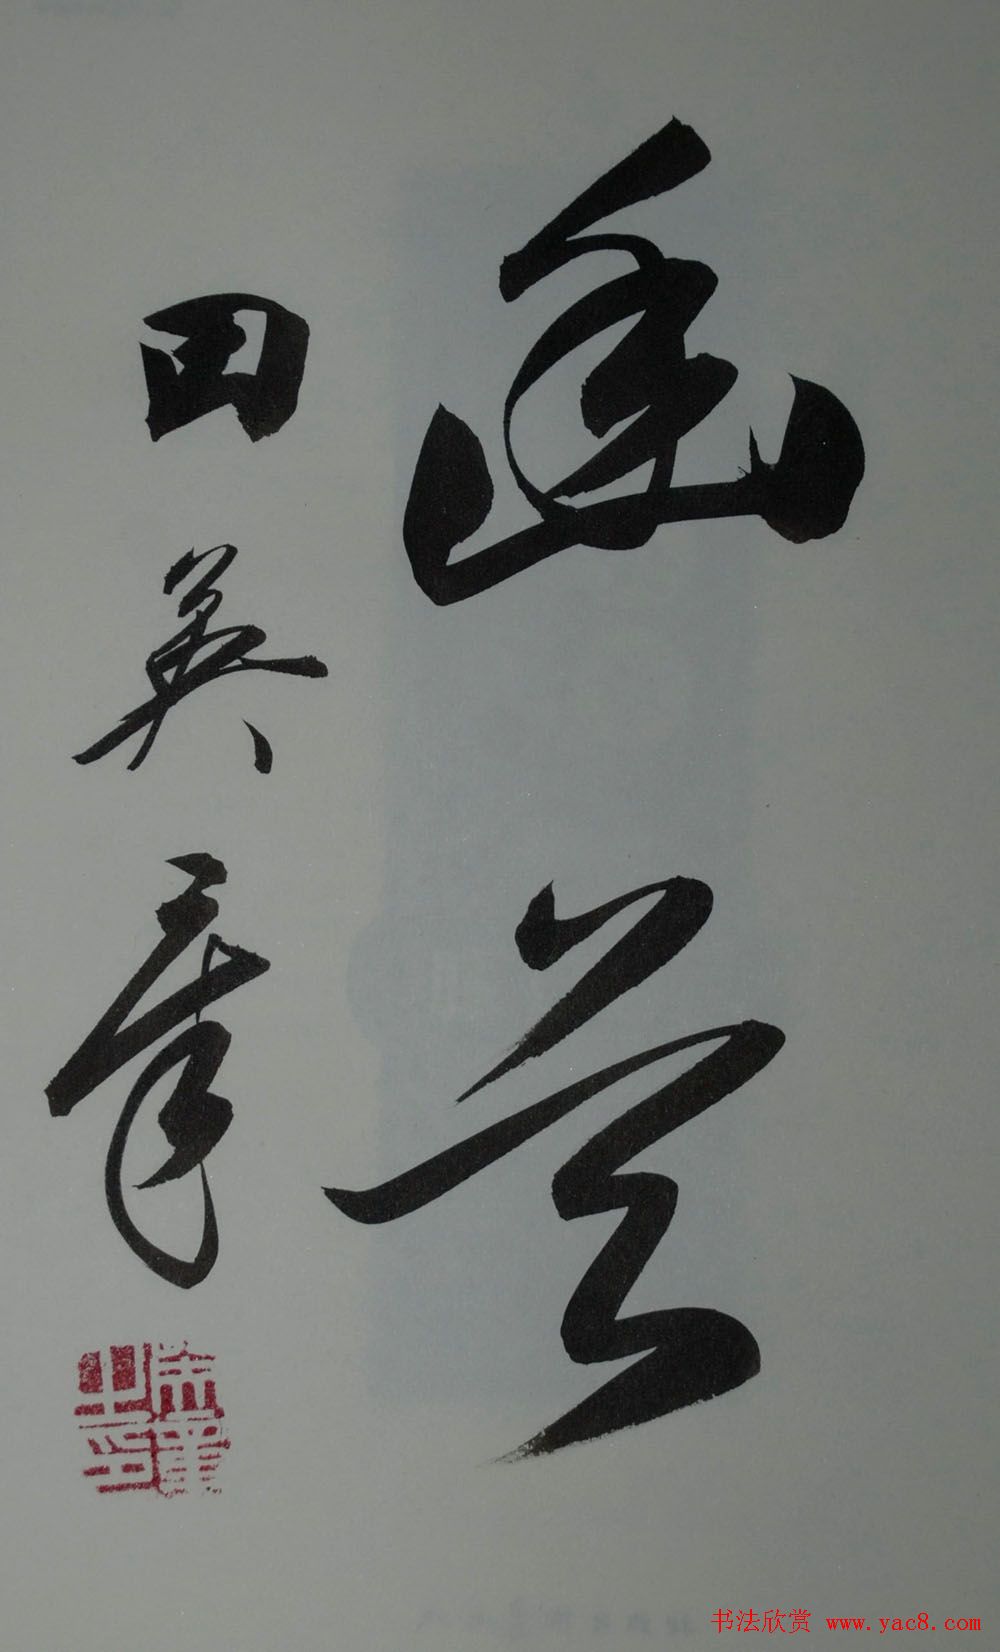 幽兰
田英章
书法欣赏 www.yac8.com